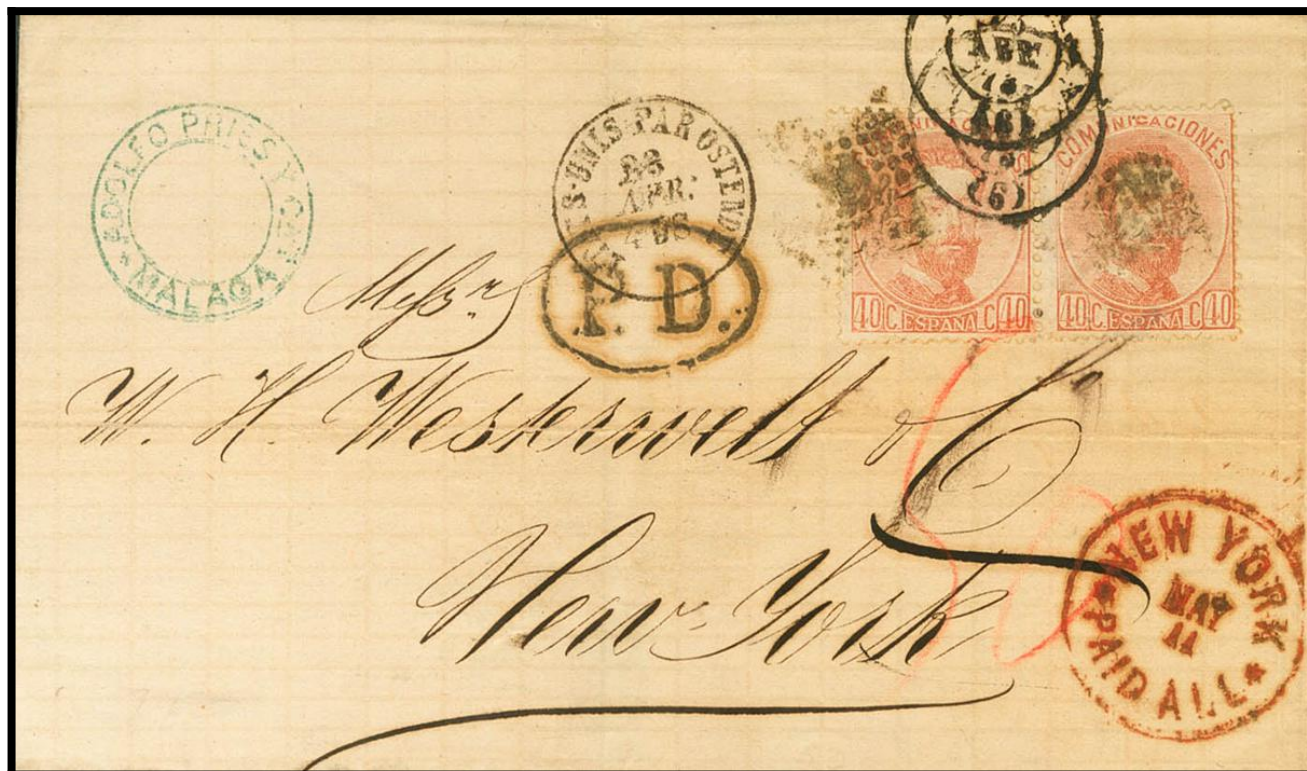 ADOLFO PRIES Y CIA
* MALAGA *
UNIS PAR OSTENDE
APR.
P. D.
ABR
(6)
COMUNICACIONES
40 C. ESPAÑA C 40
COMUNICACIONES
40 C. ESPAÑA C 40
Messrs
W. H. Westervelt & Co
New-York
NEW YORK
MAY
11
* PAID ALL *